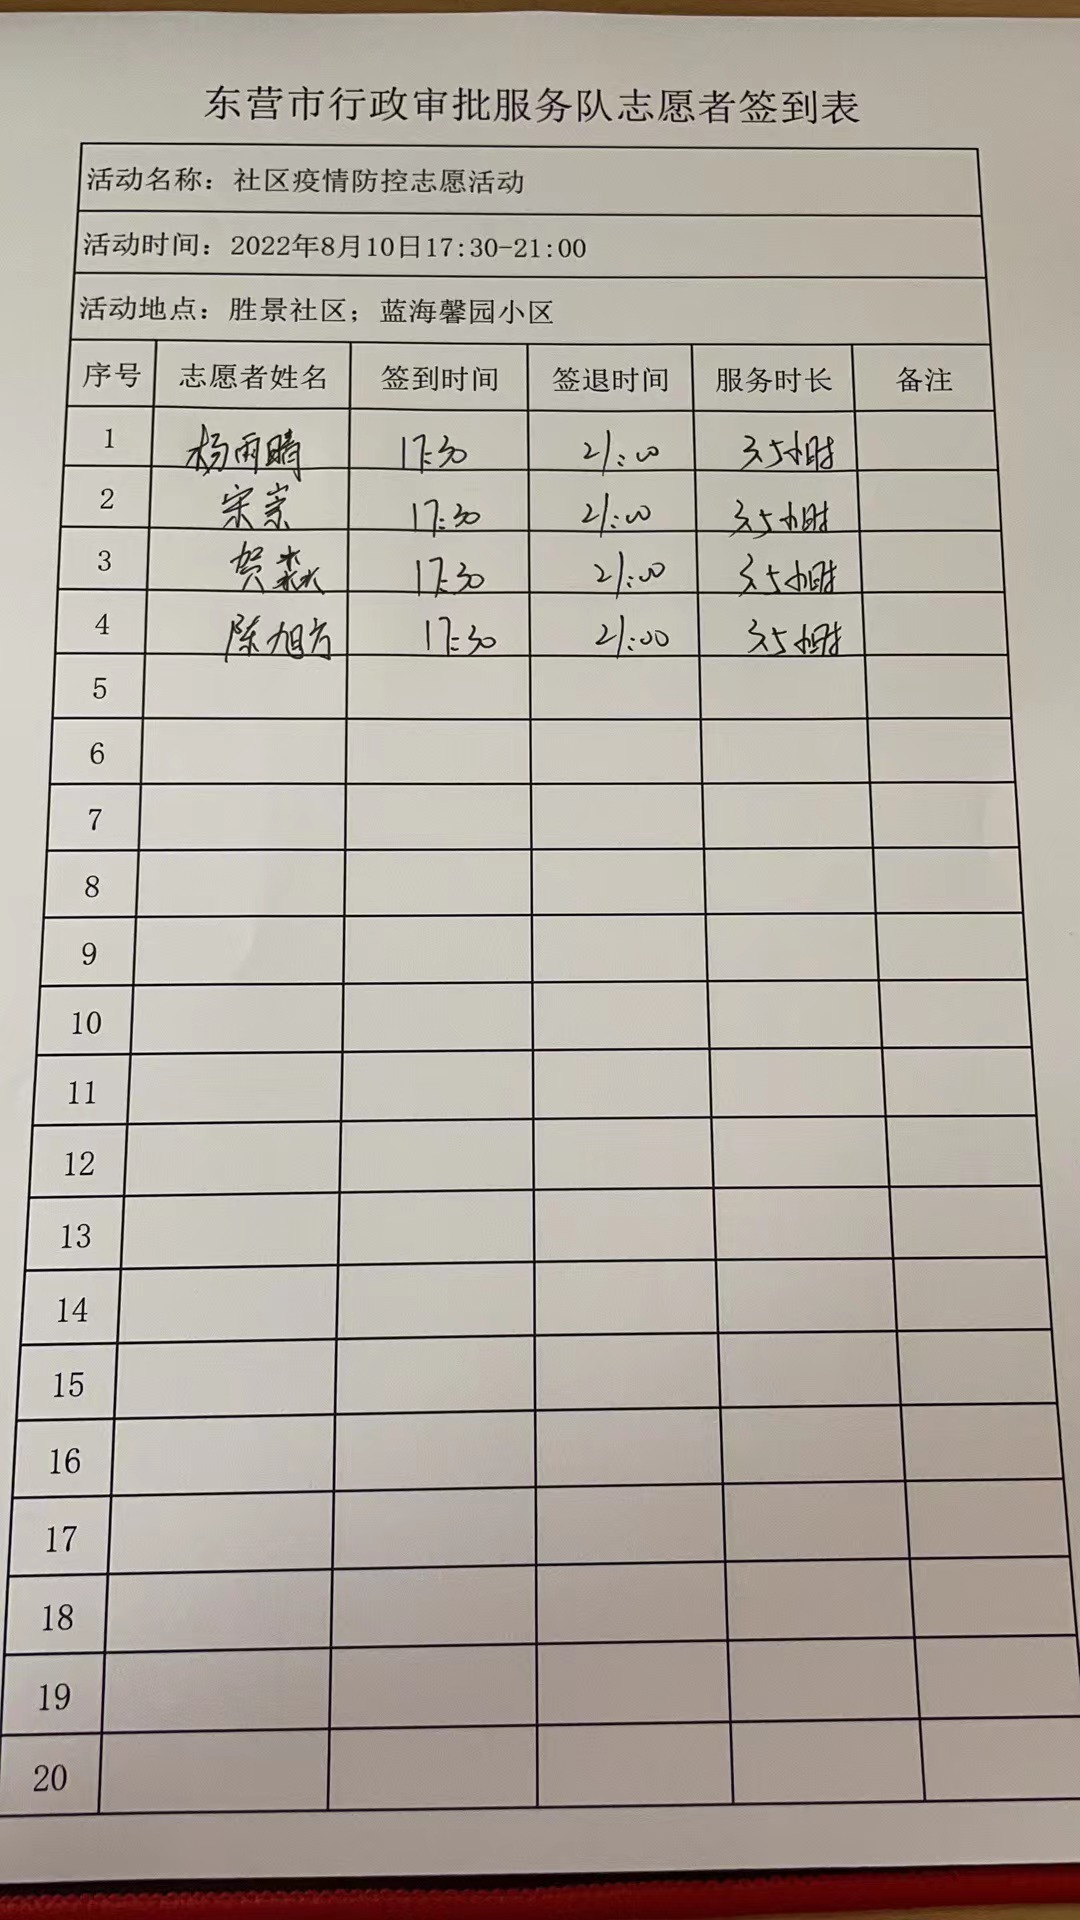 东营市行政审批服务队志愿者签到表
活动名称：社区疫情防控志愿活动
活动时间：2022年8月10日17:30-21:00
活动地点：胜景社区；蓝海馨园小区
序号 志愿者姓名 签到时间 签退时间 服务时长 备注
1 杨雨晴 17:30 21:00 3.5小时
2 宋宗 17:30 21:00 3.5小时
3 贺淼 17:30 21:00 3.5小时
4 陈旭方 17:30 21:00 3.5小时
5
6
7
8
9
10
11
12
13
14
15
16
17
18
19
20